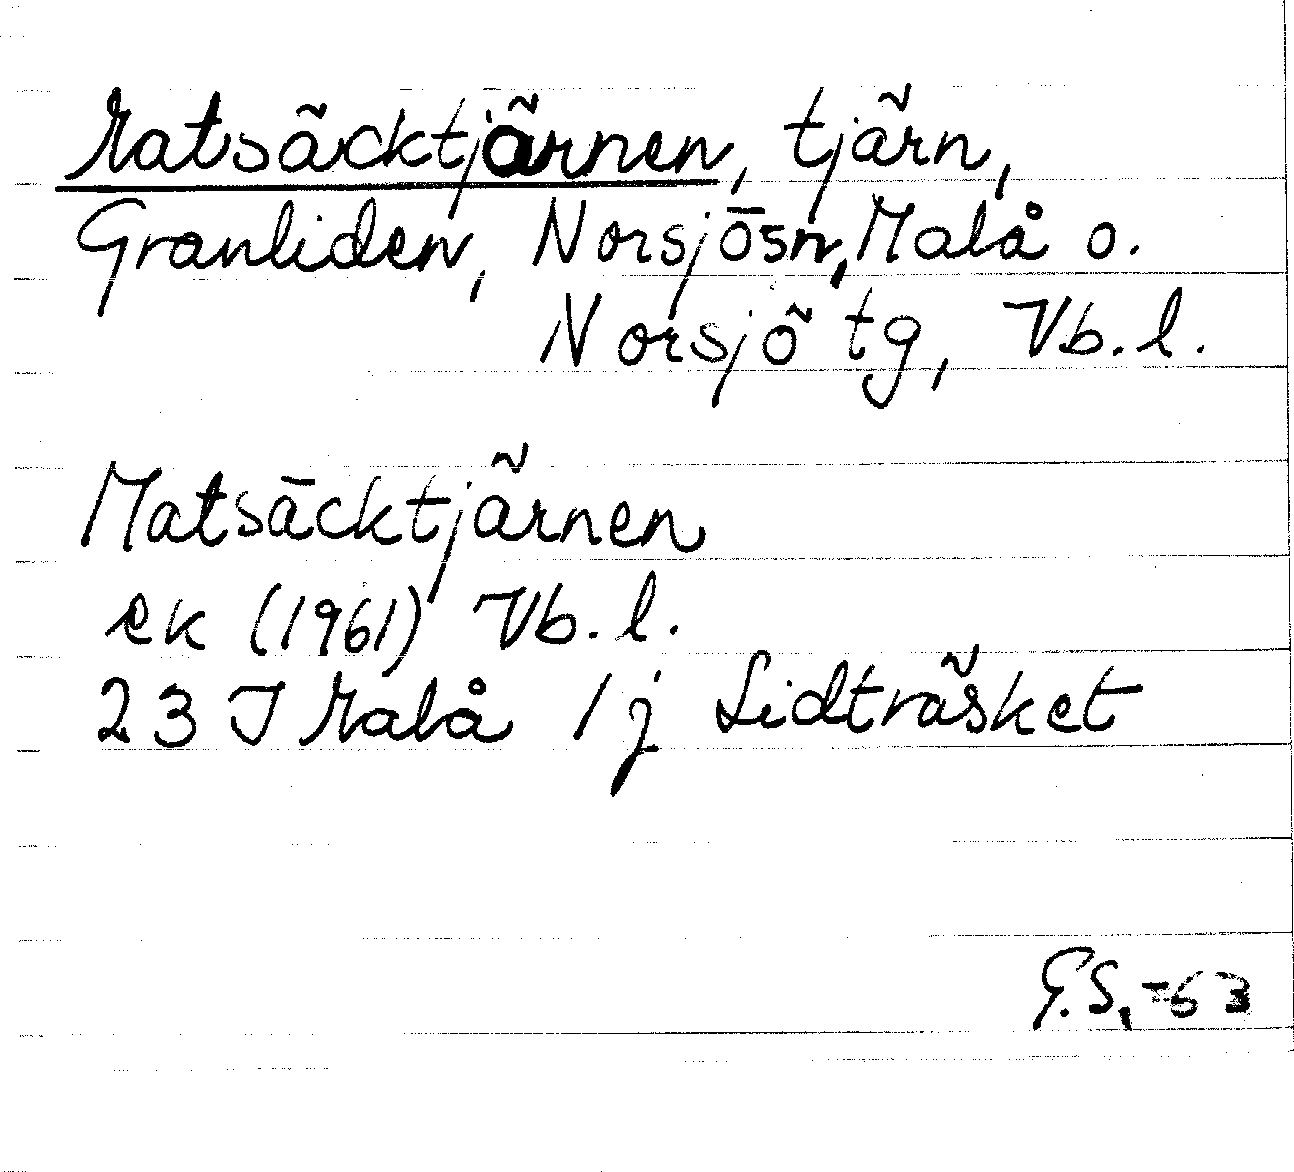 Matsäcktjärnen, tjärn,
Granliden, Norsjösn, Malå o.
Norsjö tg, Vb. l.
Matsäcktjärnen
ek (1961) Vb. l.
23 J Malå 1 j Lidträsket
G.S, -63